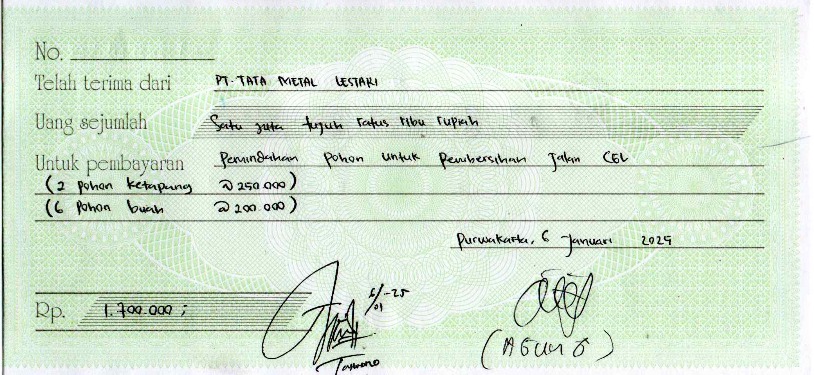 No.
Telah terima dari PT. TATA METAL LESTARI
Uang sejumlah Satu juta tujuh ratus ribu rupiah
Untuk pembayaran Pemindahan pohon untuk Pembersihan jalan CGL
(2 pohon ketapang @ 250.000)
(6 pohon buah @ 200.000)
Purwakarta, 6 Januari 2025
6/01-25
Rp. 1.700.000;